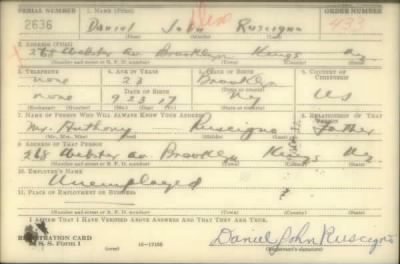 SERIAL NUMBER 1. NAME (Print) ORDER NUMBER
2636 Daniel John Ruscigno 433
(First) (Middle) (Last)
2. ADDRESS (Print)
268 Webster av Brooklyn Kings ny
(Number and street or R. F. D. number) (Town) (County) (State)
3. TELEPHONE 4. AGE IN YEARS 5. PLACE OF BIRTH 6. COUNTRY OF CITIZENSHIP
none 23 Brooklyn
DATE OF BIRTH
none 9 23 17 ny US
(Exchange) (Number) (Mo.) (Day) (Yr.) (State or country)
7. NAME OF PERSON WHO WILL ALWAYS KNOW YOUR ADDRESS 8. RELATIONSHIP OF THAT PERSON
Mr. Anthony Ruscigno Father
(Mr., Mrs., Miss) (First) (Middle) (Last)
9. ADDRESS OF THAT PERSON
268 Webster av Brooklyn Kings ny
(Number and street or R. F. D. number) (Town) (County) (State)
10. EMPLOYER'S NAME
Unemployed
11. PLACE OF EMPLOYMENT OR BUSINESS
(Number and street or R. F. D. number) (Town) (County) (State)
I AFFIRM THAT I HAVE VERIFIED ABOVE ANSWERS AND THAT THEY ARE TRUE.
REGISTRATION CARD
D. S. S. Form 1 16-17105 Daniel John Ruscigno
(Registrant's signature)